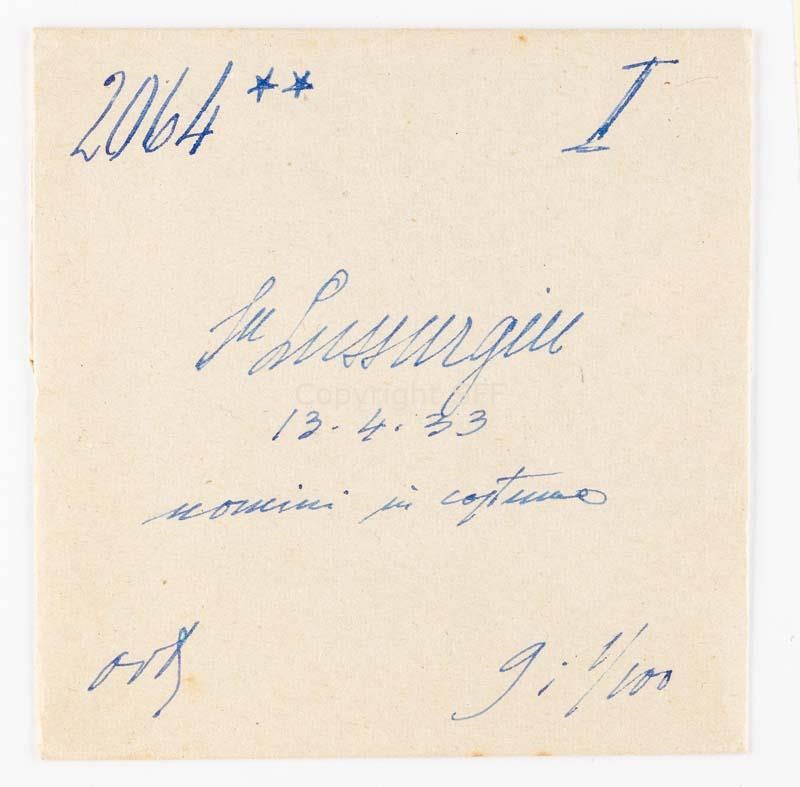 2064 ** I
Su Lussurgiu
Copyright SFF
13.4.33
uomini in costume
orto
9 : 1/100